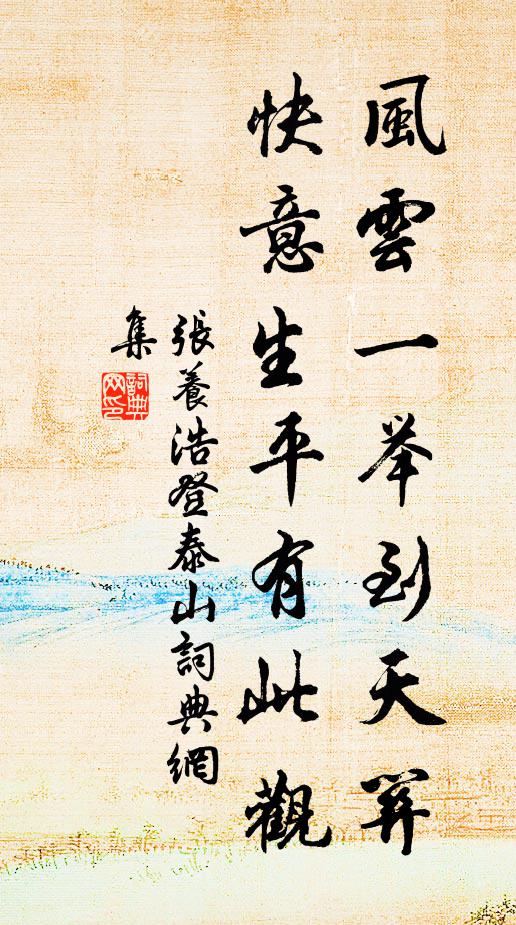 風雲一举到天关
快意生平有此觀
張養浩登泰山詞典網
集
詞典
网印